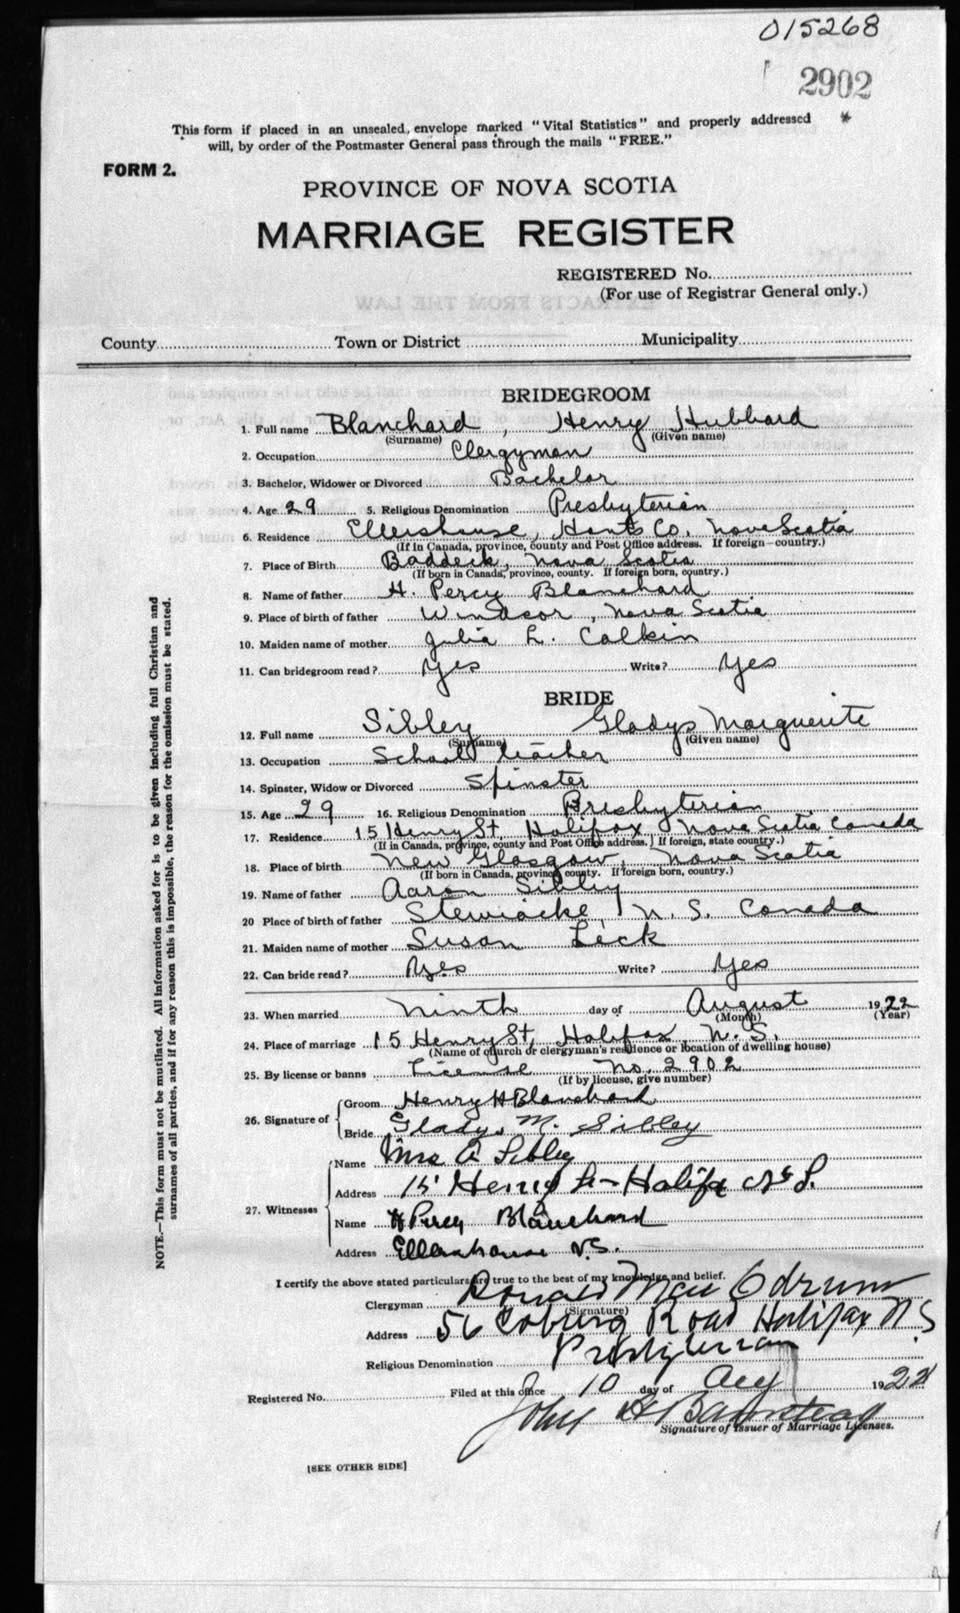 015268
2902
This form if placed in an unsealed envelope marked "Vital Statistics" and properly addressed
will, by order of the Postmaster General pass through the mails "FREE."
FORM 2.
PROVINCE OF NOVA SCOTIA
MARRIAGE REGISTER
REGISTERED No.
(For use of Registrar General only.)
County Town or District Municipality
BRIDEGROOM
1. Full name Blanchard, Henry Hubbard
(Surname) (Given name)
2. Occupation Clergyman
3. Bachelor, Widower or Divorced Bachelor
4. Age 29 5. Religious Denomination Presbyterian
6. Residence Ellershouse, Hants Co. Nova Scotia
(If in Canada, province, county and Post Office address. If foreign—country.)
7. Place of Birth Baddeck, Nova Scotia
(If born in Canada, province, county. If foreign born, country.)
8. Name of father H. Percy Blanchard
9. Place of birth of father Windsor, Nova Scotia
10. Maiden name of mother Julia L. Calkin
11. Can bridegroom read? Yes Write? Yes
BRIDE
12. Full name Sibley Gladys Marguerite
(Surname) (Given name)
13. Occupation School teacher
14. Spinster, Widow or Divorced Spinster
15. Age 29 16. Religious Denomination Presbyterian
17. Residence 15 Henry St, Halifax, Nova Scotia Canada
(If in Canada, province, county and Post Office address. If foreign, state country.)
18. Place of birth New Glasgow, Nova Scotia
(If born in Canada, province, county. If foreign born, country.)
19. Name of father Aaron Sibley
20 Place of birth of father Stewiacke, N. S. Canada
21. Maiden name of mother Susan Leck
22. Can bride read? Yes Write? Yes
23. When married Ninth day of August 1922
(Month) (Year)
24. Place of marriage 15 Henry St, Halifax, N. S.
(Name of church or clergyman's residence or location of dwelling house)
25. By license or banns License No. 2902
(If by license, give number)
26. Signature of Groom Henry H Blanchard
Bride Gladys M. Sibley
27. Witnesses Name Mrs A Sibley
Address 15 Henry St Halifax N. S.
Name H Percy Blanchard
Address Ellershouse N.S.
I certify the above stated particulars are true to the best of my knowledge and belief.
Clergyman Donald Mac Odrum
(Signature)
Address 56 Coburg Road Halifax N.S
Religious Denomination Presbyterian
Registered No. Filed at this office 10 day of Aug 1922
John
Signature of Issuer of Marriage Licenses.
[SEE OTHER SIDE]
NOTE.—This form must not be mutilated. All information asked for is to be given including full Christian and
surnames of all parties, and if for any reason this is impossible, the reason for the omission must be stated.